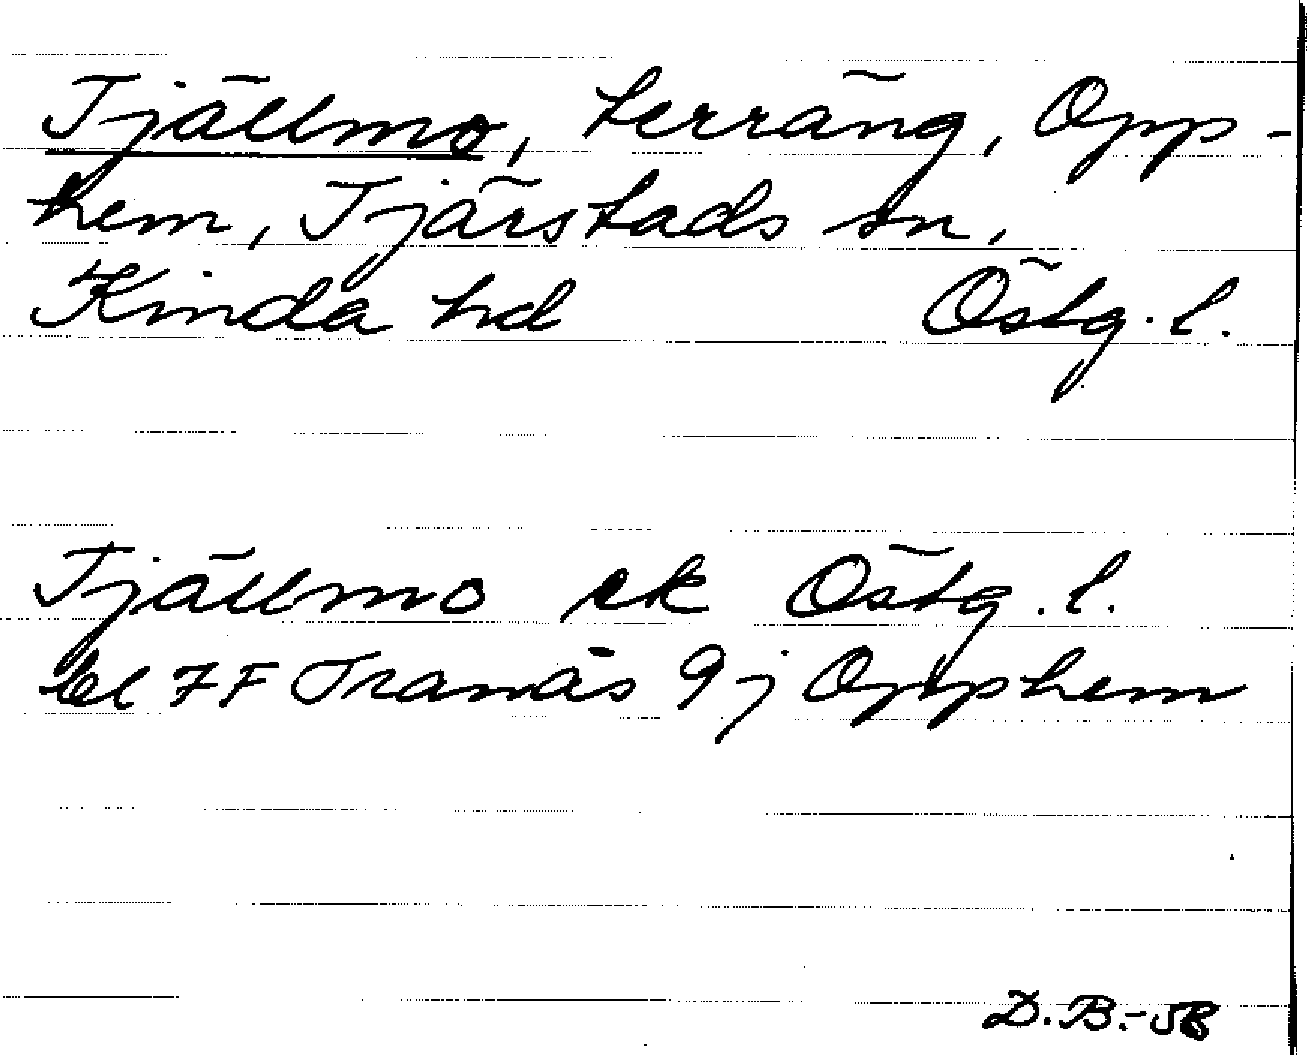 Tjällmo, terräng, Opp-
hem, Tjärstads sn,
Kinda hd Östg. l.
Tjällmo ek Östg. l.
bl 7 F Tranås 9 j Opphem
D.B.-58